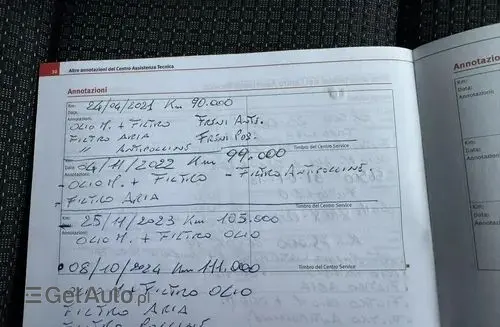 30 Altre annotazioni del Centro Assistenza Tecnica
Annotazioni
Annotazioni
Km: 24/04/2021 Km 90.000
Data:
Annotazioni:
OLIO M. + FILTRO FRENI ANT.
FILTRO ARIA FRENI POS.
" ANTIPOLLINE
Timbro del Centro Service
Km: 04/11/2022 Km 99.000
Data:
Annotazioni:
- OLIO M. + FILTRO - FILTRO ANTIPOLLINE
- FILTRO ARIA
Timbro del Centro Service
Km: 25/11/2023 Km 105.000
Annotazioni:
OLIO M. + FILTRO OLIO
Timbro del Centro Service
Km: 08/10/2024 Km 111.000
OLIO M + FILTRO OLIO
FILTRO ARIA
FILTRO POLLINE
Km:
Data:
Annotazioni:
Km:
Data:
Annotazioni
GetAuto.pl